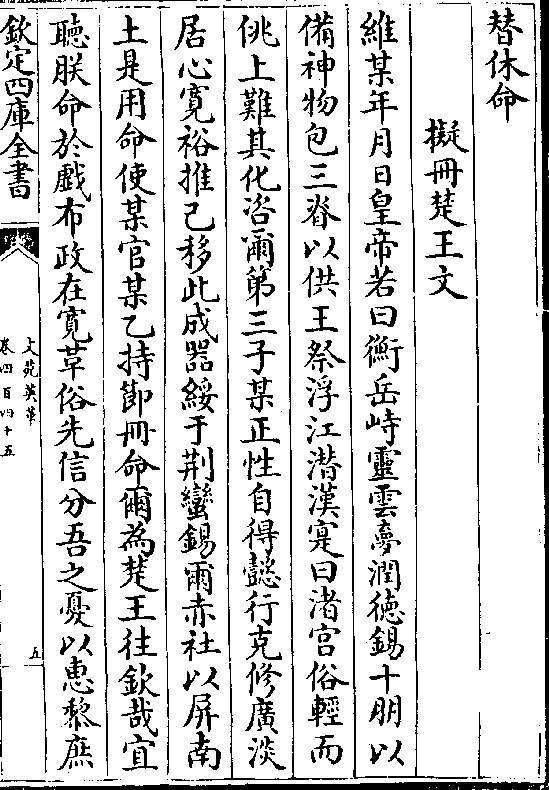 替休命
擬冊楚王文
維某年月日皇帝若曰衡岳峙靈雲夢潤徳錫十朋以
備神物包三脊以供王祭浮江潜漢寔曰渚宫俗輕而
佻上難其化咨爾第三子某正性自得懿行克修廣淡
居心寛裕推己移此成器綏于荆蠻錫爾赤社以屏南
土是用命使某官某乙持節冊命爾為楚王往欽哉宜
聽朕命於戲布政在寛草俗先信分吾之憂以恵黎庶
欽定四庫全書
文苑英華
卷四百四十五
五